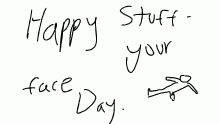 Happy Stuff-
your
face
Day.